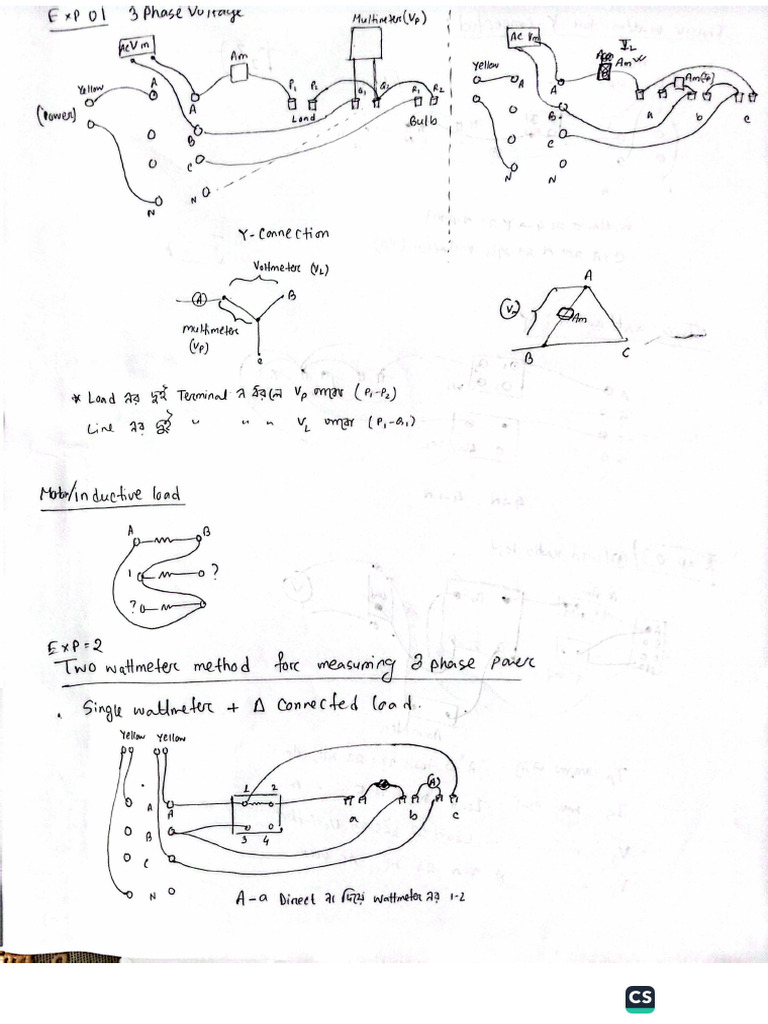 EXP 01 3 Phase Voltage
Multimeter(Vp)
AcVm
Am
Yellow
A
A
P1 P2 Q1 Q2 R1 R2
(Power)
B
Load
Bulb
C
N
N
Ac Vm
VL
Am
Yellow
A
A
Am(Ip)
B
a b c
C
N
N
Y-Connection
Voltmeter (VL)
A
B
multimeter
(Vp)
C
A
Am
B
C
* Load এর দুই Terminal এ ধরলে Vp পাবো (P1-P2)
Line এর দুই " " " VL পাবো (P1-Q1)
Motor/inductive load
A B
1 ?
?
EXP=2
Two wattmeter method for measuring 3 phase power
. Single wattmeter + Δ Connected load.
Yellow Yellow
1 2
A
A
(A)
a b c
B
3 4
C
N
A-a Direct না দিয়ে wattmeter এর 1-2
CS